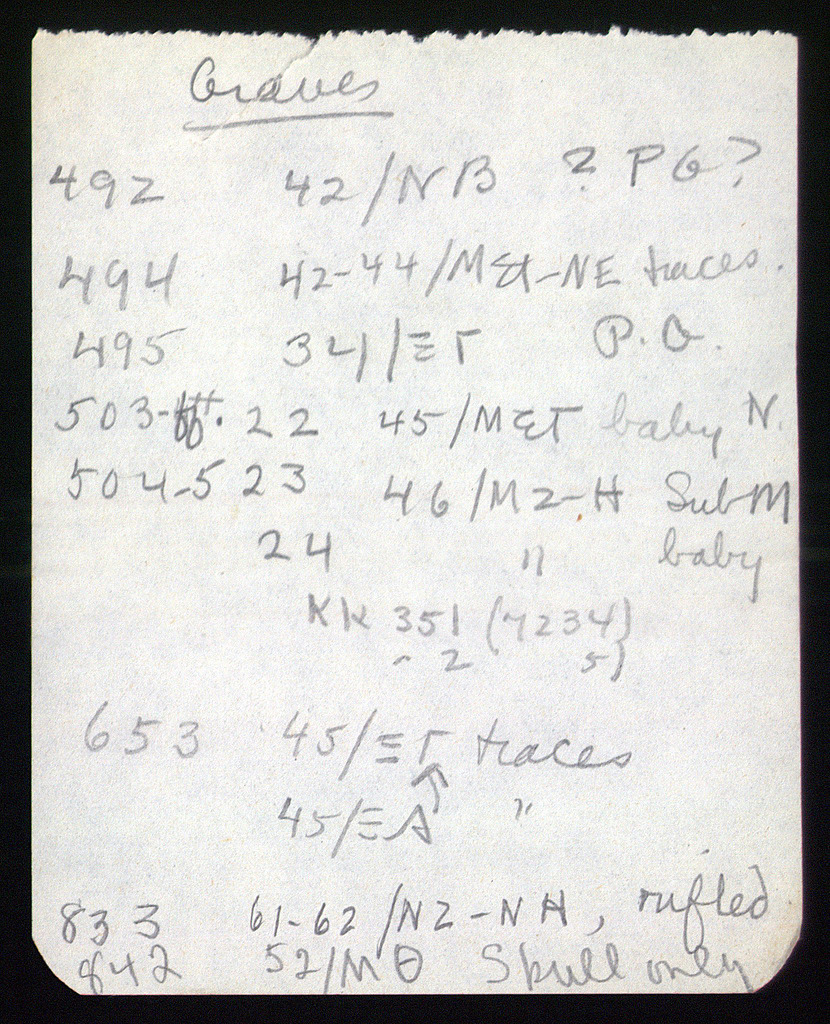 Graves
492 42/NB ? PG?
494 42-44/MΣΤ-NE traces.
495 34/ΞΓ P.G.
503-ff. 22 45/MΣΤ baby N.
504-5 23 46/MZ-H SubM
24 " baby
KK 351 (7234)
- 2 5)
653 45/ΞΓ traces
45/ΞA "
833 61-62/NZ-NH, rifled
842 52/MΘ Skull only